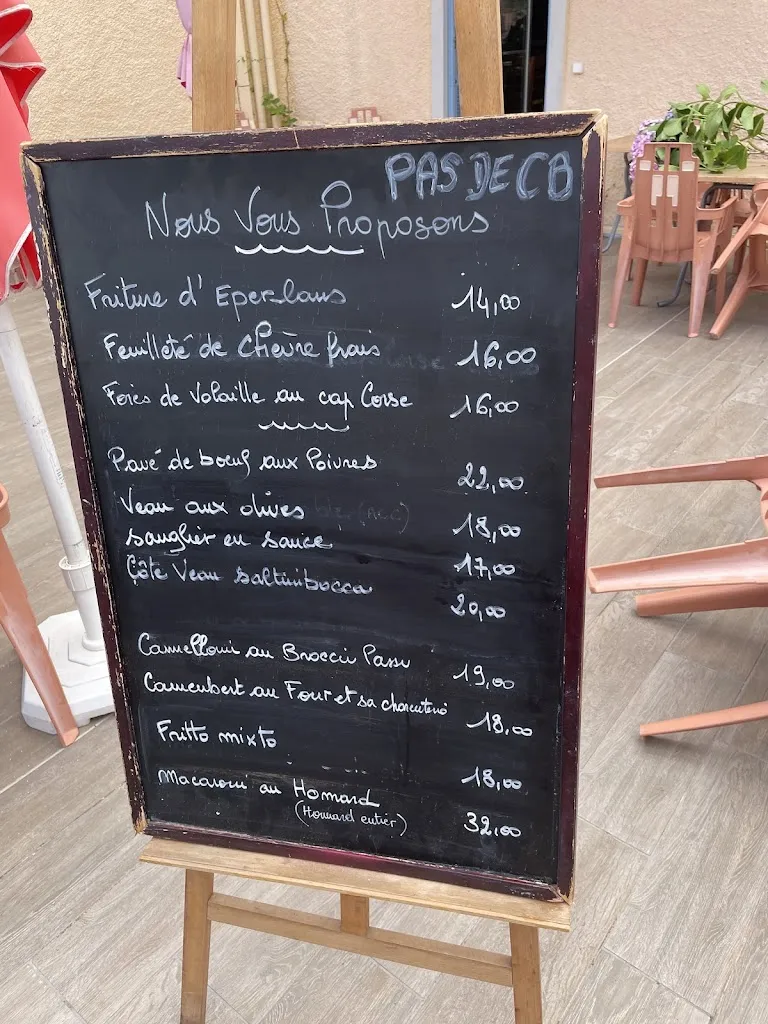 PAS DE CB
Nous Vous Proposons
Friture d'Eperlans 14,00
Feuilleté de Chèvre frais 16,00
Foies de Volaille au cap Corse 16,00
Pavé de boeuf aux Poivres 22,00
Veau aux olives 18,00
Sanglier en sauce 17,00
Côte Veau saltimbocca 20,00
Cannelloni au Brocciu Passu 19,00
Camembert au Four et sa charcuterie 18,00
Fritto mixto 18,00
Macaroni au Homard 32,00
(Homard entier)